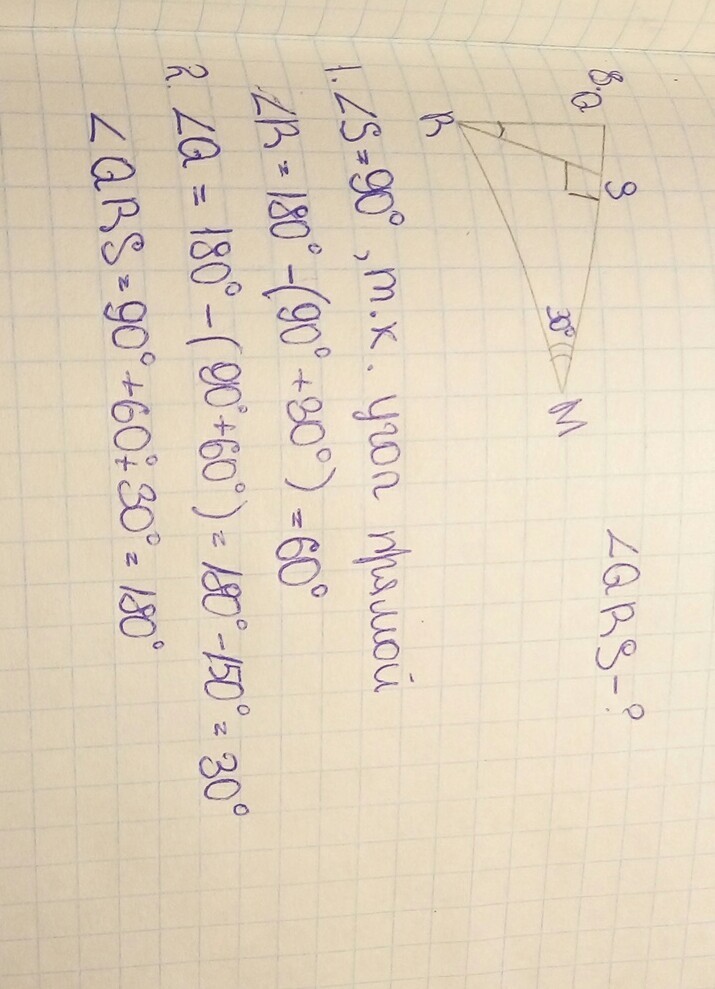 8.
Q S M R 30° ∠QRS-?
1. ∠S=90°, т.к. угол прямой
∠R = 180° - (90° + 30°) = 60°
2. ∠Q = 180° - (90° + 60°) = 180° - 150° = 30°
∠QRS = 90° + 60° + 30° = 180°